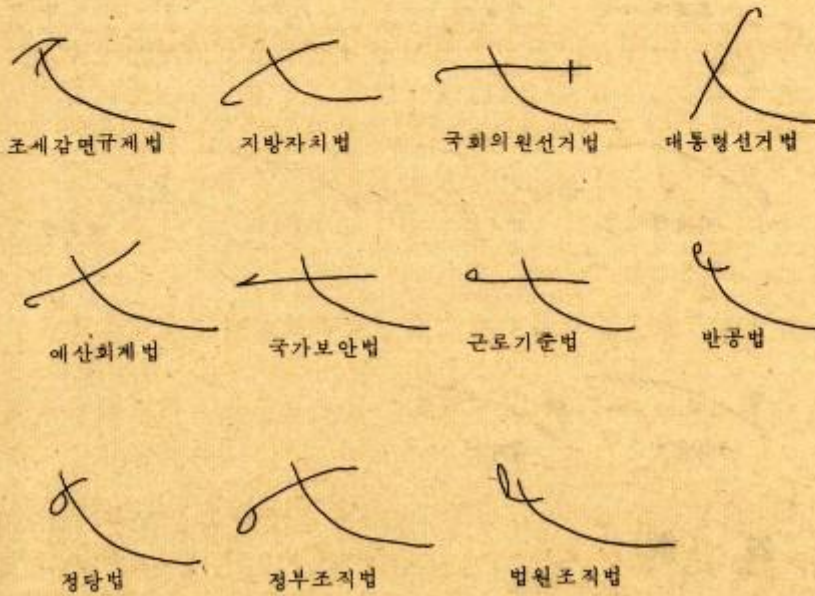 조세감면규제법 지방자치법 국회의원선거법 대통령선거법
예산회계법 국가보안법 근로기준법 반공법
정당법 정부조직법 법원조직법